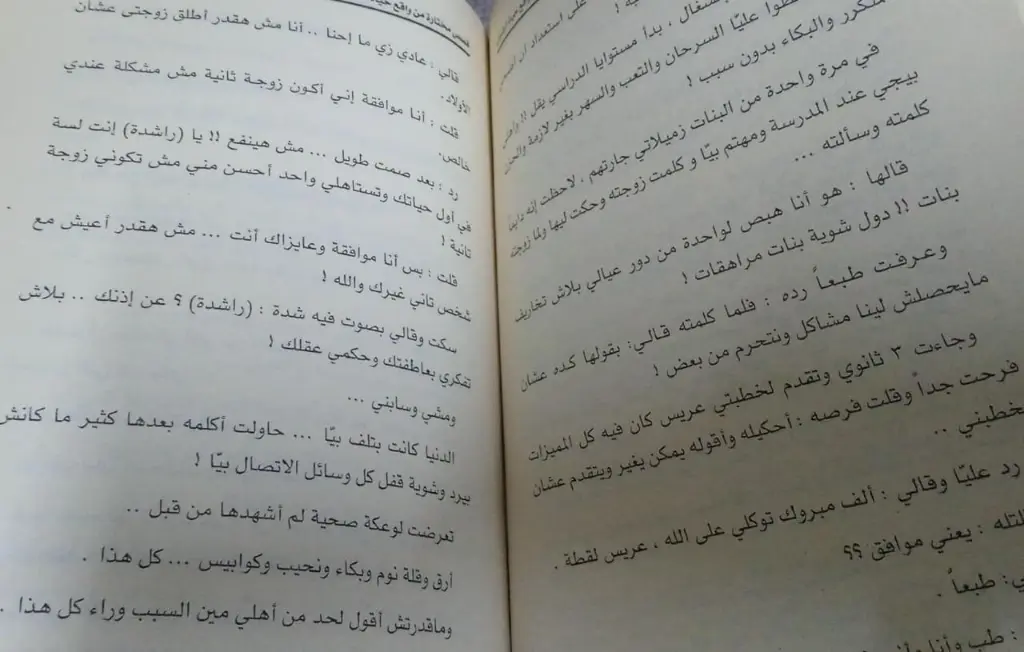 على استعداد
السرحان والتعب والسهر بغير لازمة والحزن
بدأ مستوايا الدراسي يقل !!
المتكرر والبكاء بدون سبب !
في مرة واحدة من البنات زميلاتي جارتهم . لاحظت إنه دايماً
بييجي عند المدرسة ومهتم بيّا و كلمت زوجته وحكت ليها ولما زوجته
كلمته وسألته ...
قالها : هو أنا هبص لواحدة من دور عيالي بلاش تخاريف
بنات !! دول شوية بنات مراهقات !
وعرفت طبعاً رده : فلما كلمته قالي: بقولها كده عشان
مايحصلش لينا مشاكل ونتحرم من بعض !
وجاءت ٣ ثانوي وتقدم لخطبتي عريس كان فيه كل المميزات
فرحت جداً وقلت فرصه : أحكيله وأقوله يمكن يغير ويتقدم عشان
يخطبني ..
رد عليّا وقالي : ألف مبروك توكلي على الله ، عريس لقطة .
يعني موافق ؟؟
طبعاً .
: طب وأنا
قصص مختارة من واقع
قالي : عادي زي ما إحنا .. أنا مش هقدر أطلق زوجتى عشان
الأولاد.
قلت : أنا موافقة إني أكون زوجة ثانية مش مشكلة عندي
خالص.
رد : بعد صمت طويل ... مش هينفع !! يا (راشدة) إنت لسة
في أول حياتك وتستاهلي واحد أحسن مني مش تكوني زوجة
ثانية !
قلت : بس أنا موافقة وعايزاك أنت ... مش هقدر أعيش مع
شخص تاني غيرك والله !
سكت وقالي بصوت فيه شدة : (راشدة) ؟ عن إذنك .. بلاش
تفكري بعاطفتك وحكمي عقلك !
ومشي وسابني ...
الدنيا كانت بتلف بيّا ... حاولت أكلمه بعدها كثير ما كانش
بيرد وشوية قفل كل وسائل الاتصال بيّا !
تعرضت لوعكة صحية لم أشهدها من قبل ..
أرق وقلة نوم وبكاء ونحيب وكوابيس ... كل هذا .
وماقدرتش أقول لحد من أهلي مين السبب وراء كل هذا .